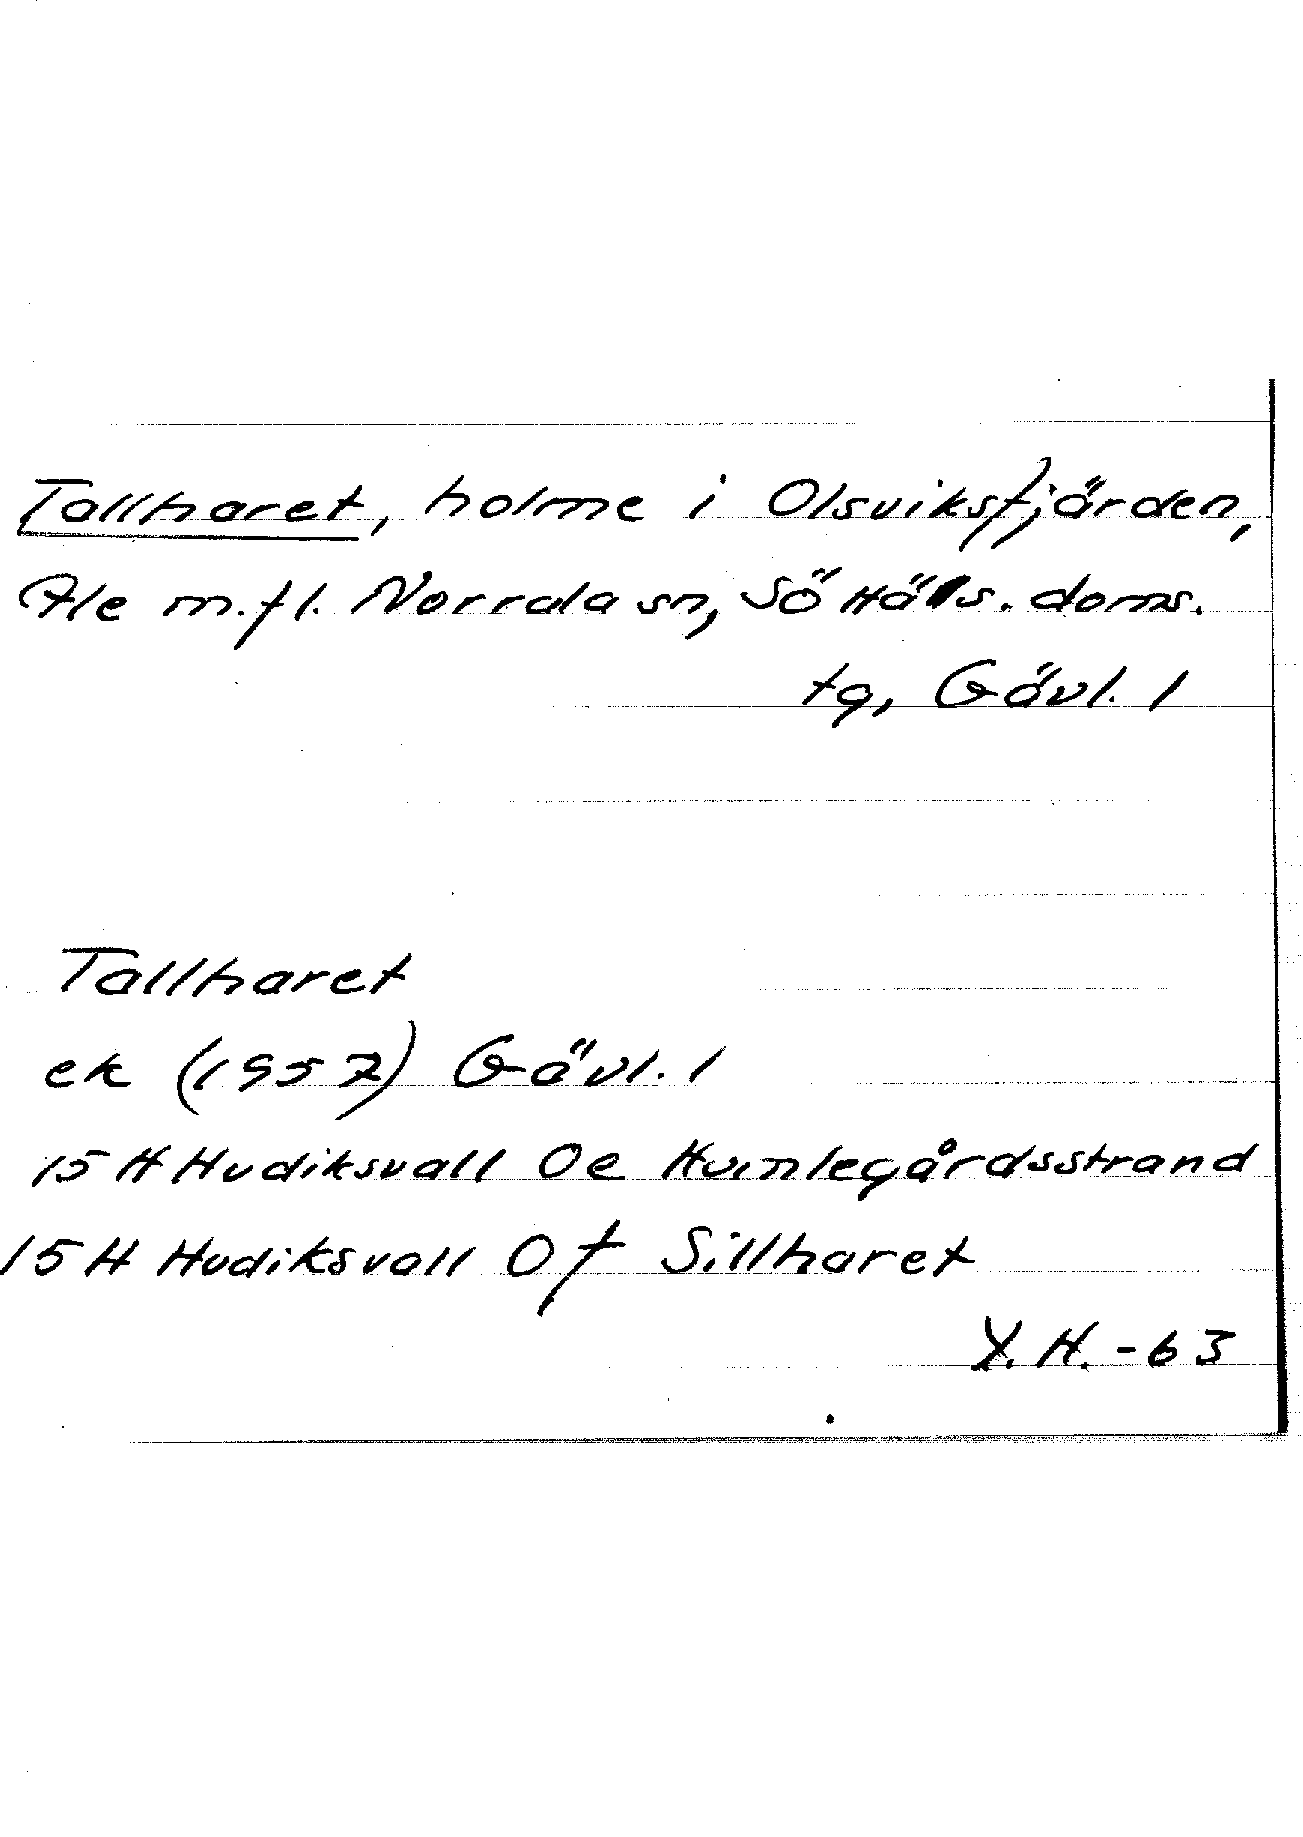 Tallharet, holme i Olsviksfjärden,
Ale m.fl. Norrala sn, Sö Häls. doms.
tg, Gävl. l
Tallharet
ek (1957) Gävl. l
15 H Hudiksvall 0e Humlegårdsstrand
15 H Hudiksvall 0f Sillharet
Y. H. -63